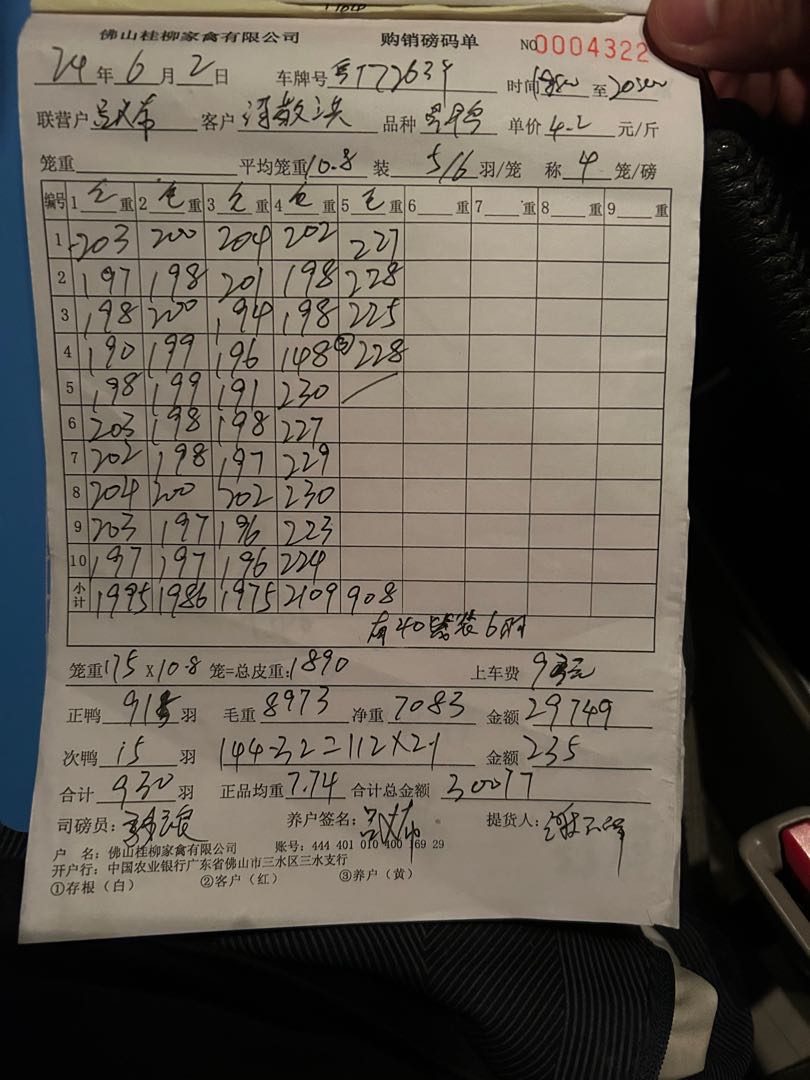 佛山桂柳家禽有限公司 购销磅码单 NO 0004322
24年6月2日 车牌号 时间 至
联营户 客户 品种 单价4.2元/斤
笼重 平均笼重10.8 装5/6羽/笼 称4笼/磅
编号 1 毛重 2 毛重 3 毛重 4 毛重 5 毛重 6 重 7 重 8 重 9 重
1 203 200 204 202 227
2 197 198 201 198 228
3 198 200 194 198 225
4 190 199 196 148③ 228
5 198 199 191 230
6 203 198 198 227
7 202 198 197 229
8 204 200 202 230
9 203 197 196 223
10 197 197 196 224
小计 1995 1986 1975 2109 908
有40笼装6羽
笼重175×10.8笼=总皮重:1890 上车费
正鸭915羽 毛重8973 净重7083 金额29749
次鸭15羽 144-32=112×2.1 金额235
合计930羽 正品均重7.74 合计总金额30077
司磅员: 养户签名: 提货人:
户 名:佛山桂柳家禽有限公司 账号:444 401 010 400 169 29
开户行:中国农业银行广东省佛山市三水区三水支行
①存根(白) ②客户(红) ③养户(黄)